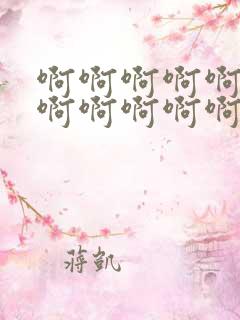 啊啊啊啊啊
啊啊啊啊啊
蒋凯